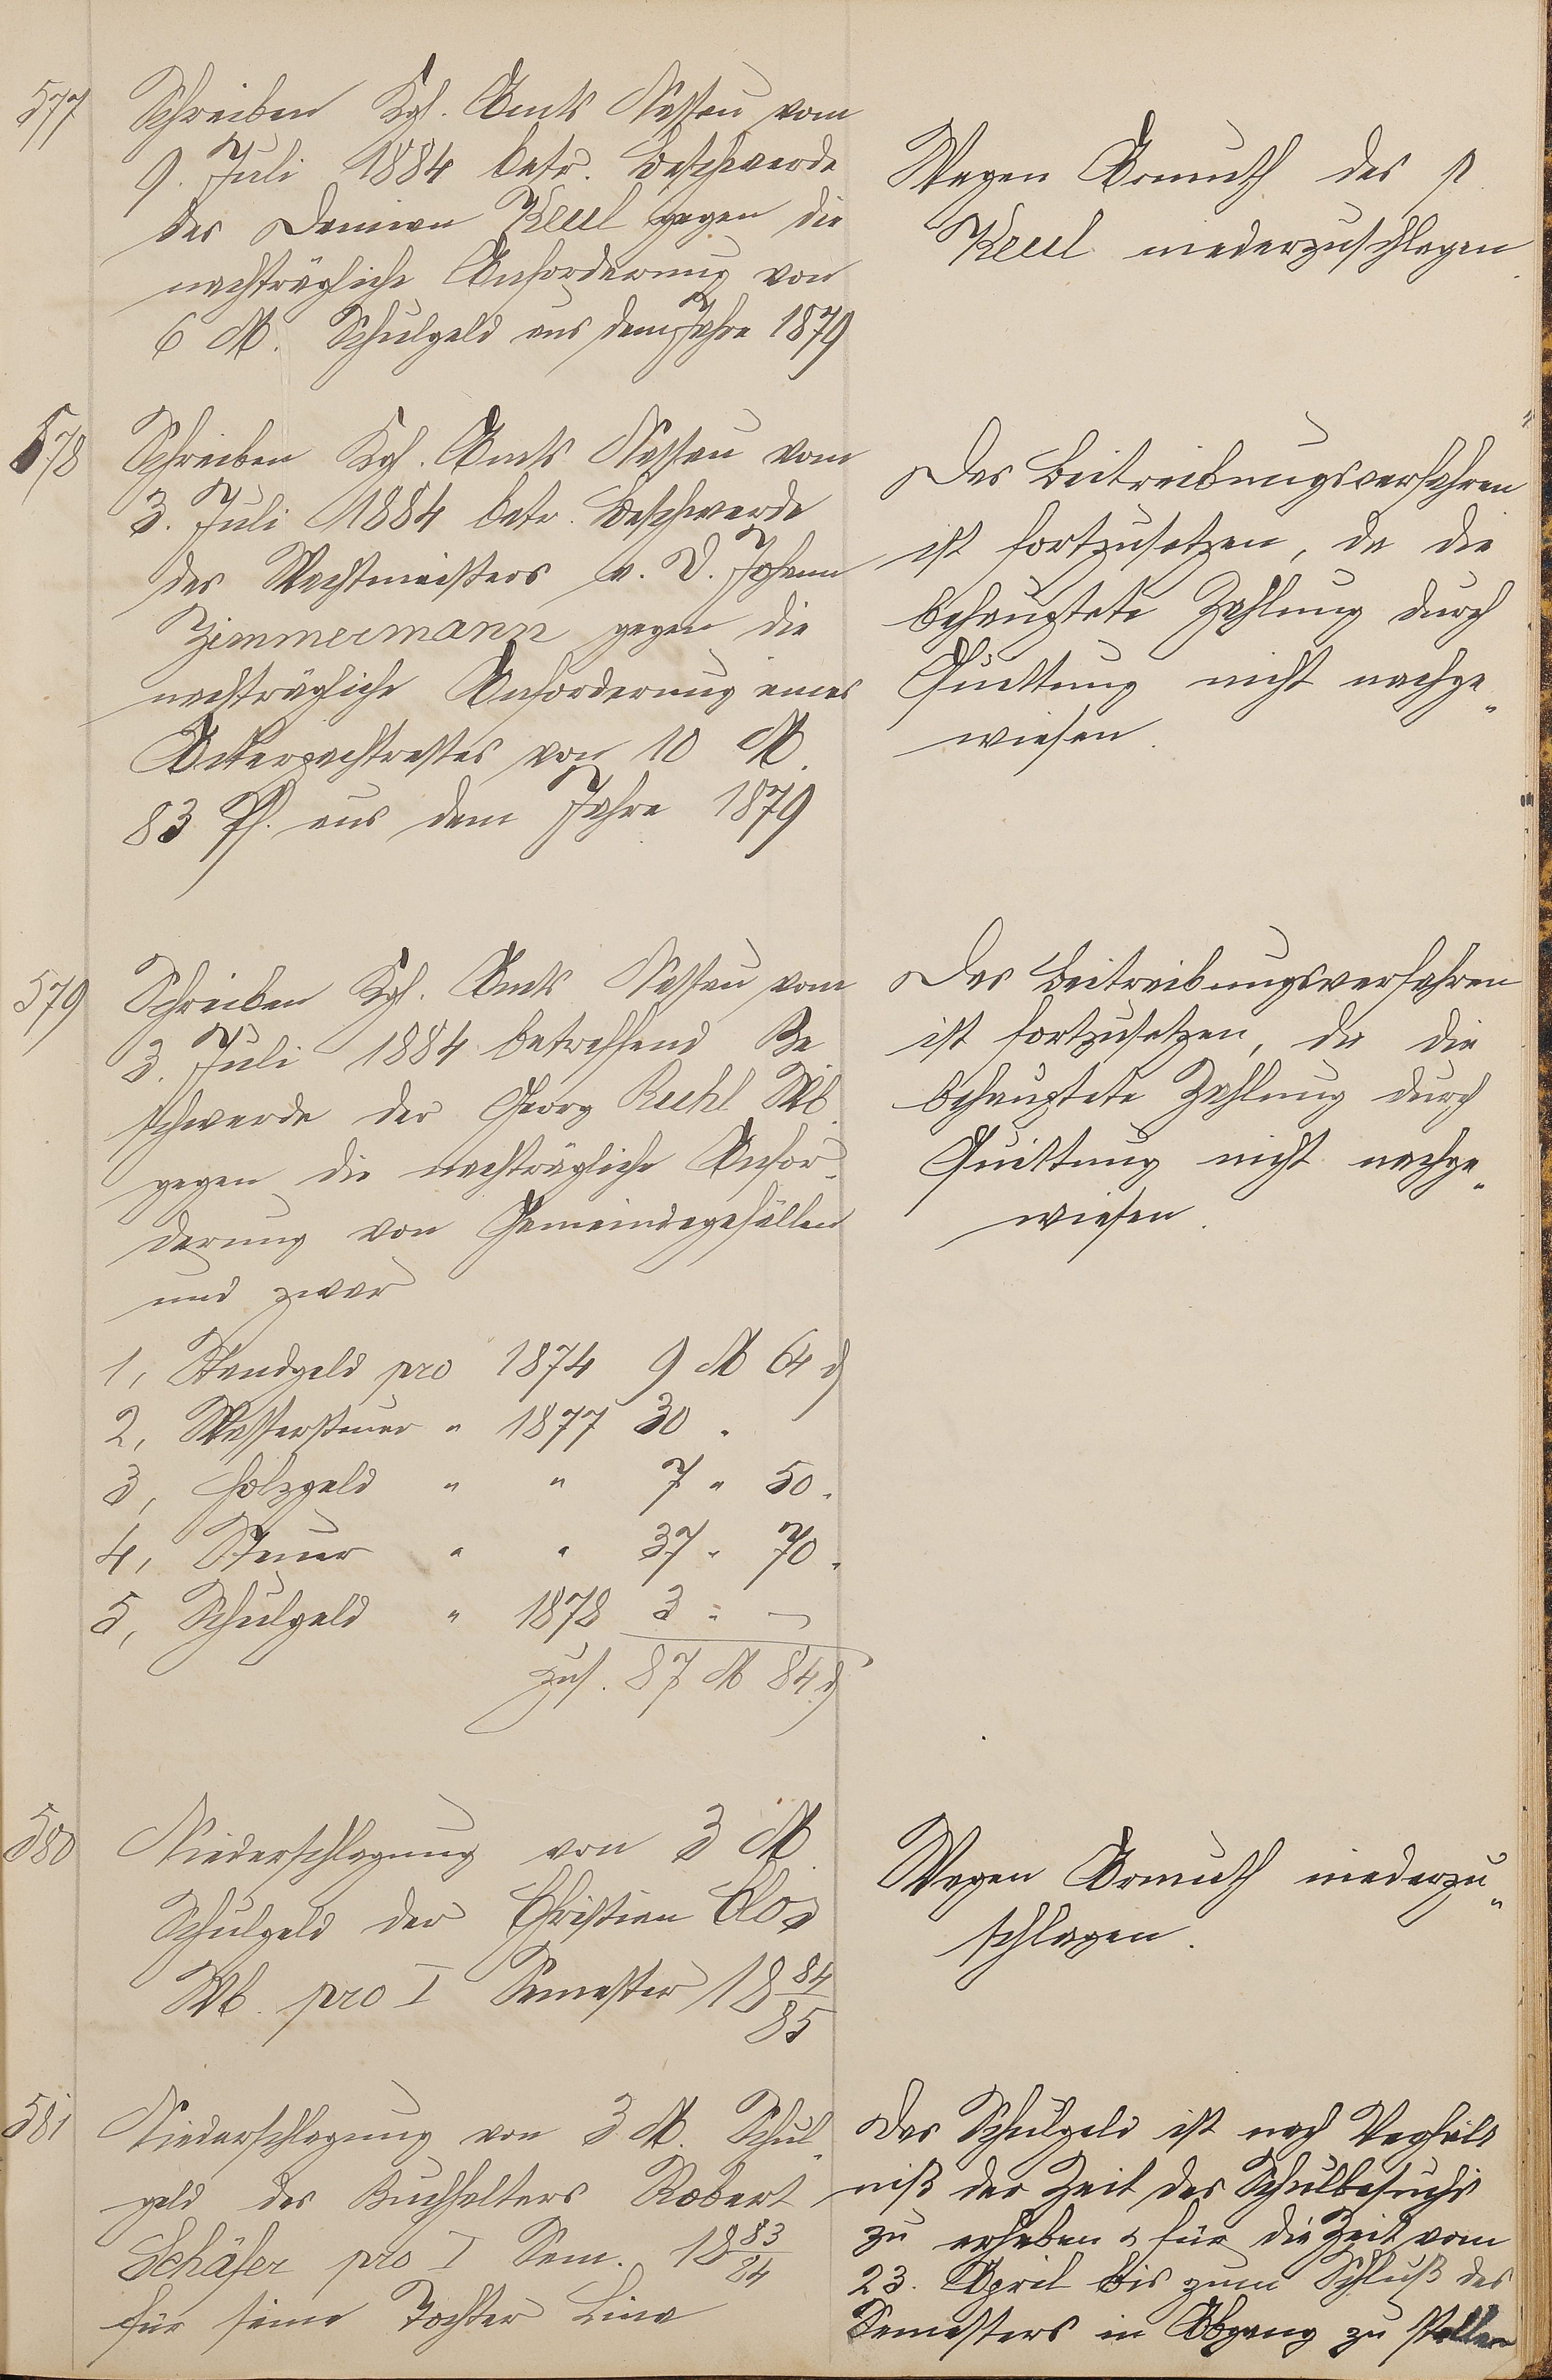 577
Schreiben Kgl. Amts Nassau vom
9. Juli 1884 betr. Beschwerde
des Damian Keul gegen die
nachträgliche Anforderung von
6 M. Schulgeld aus dem Jahre 1879
Wegen Armuth des p
Keul niederzuschlagen
578
Schreiben Kgl. Amts Nassau vom
3. Juli 1884 betr. Beschwerde
des Wachtmeisters a. D. Johann
Zimmermann gegen die
nachträgliche Anforderung eines
Ackerpachtrestes von 10 M.
83 Pf. aus dem Jahre 1879
Das Beitreibungsverfahren
ist fortzusetzen, da die
behauptete Zahlung durch
Quittung nicht nachge„
wiesen.
579
Schreiben Kgl. Amts Nassau vom
3. Juli 1884 betreffend Be
schwerde der Georg Ruhl Wb.
gegen die nachträgliche Anfor„
derung von Gemeindegefällen
und zwar
1, Standgeld pro 1874 9 M 64 ₰
2, Wassersteuer " 1877 30 "
3, Holzgeld " " 7 " 50 "
4, Steuer " " 37 " 70 "
5, Schulgeld " 1878 3 " —
zus. 87 M 84 ₰
Das Beitreibungsverfahren
ist fortzusetzen, da die
behauptete Zahlung durch
Quittung nicht nachge„
wiesen.
580
Niederschlagung von 3 M.
Schulgeld der Christian Clos
Wb. pro I Semester 18 84/85
Wegen Armuth niederzu„
schlagen.
581
Niederschlagung von 3 M. Schul„
geld des Buchhalters Robert
Schäfer pro I Sem. 18 83/84
für seine Tochter Lina
Das Schulgeld ist nach Verhält
niß der Zeit des Schulbesuchs
zu erheben & für die Zeit vom
23. April bis zum Schluß des
Semesters in Abgang zu stellen